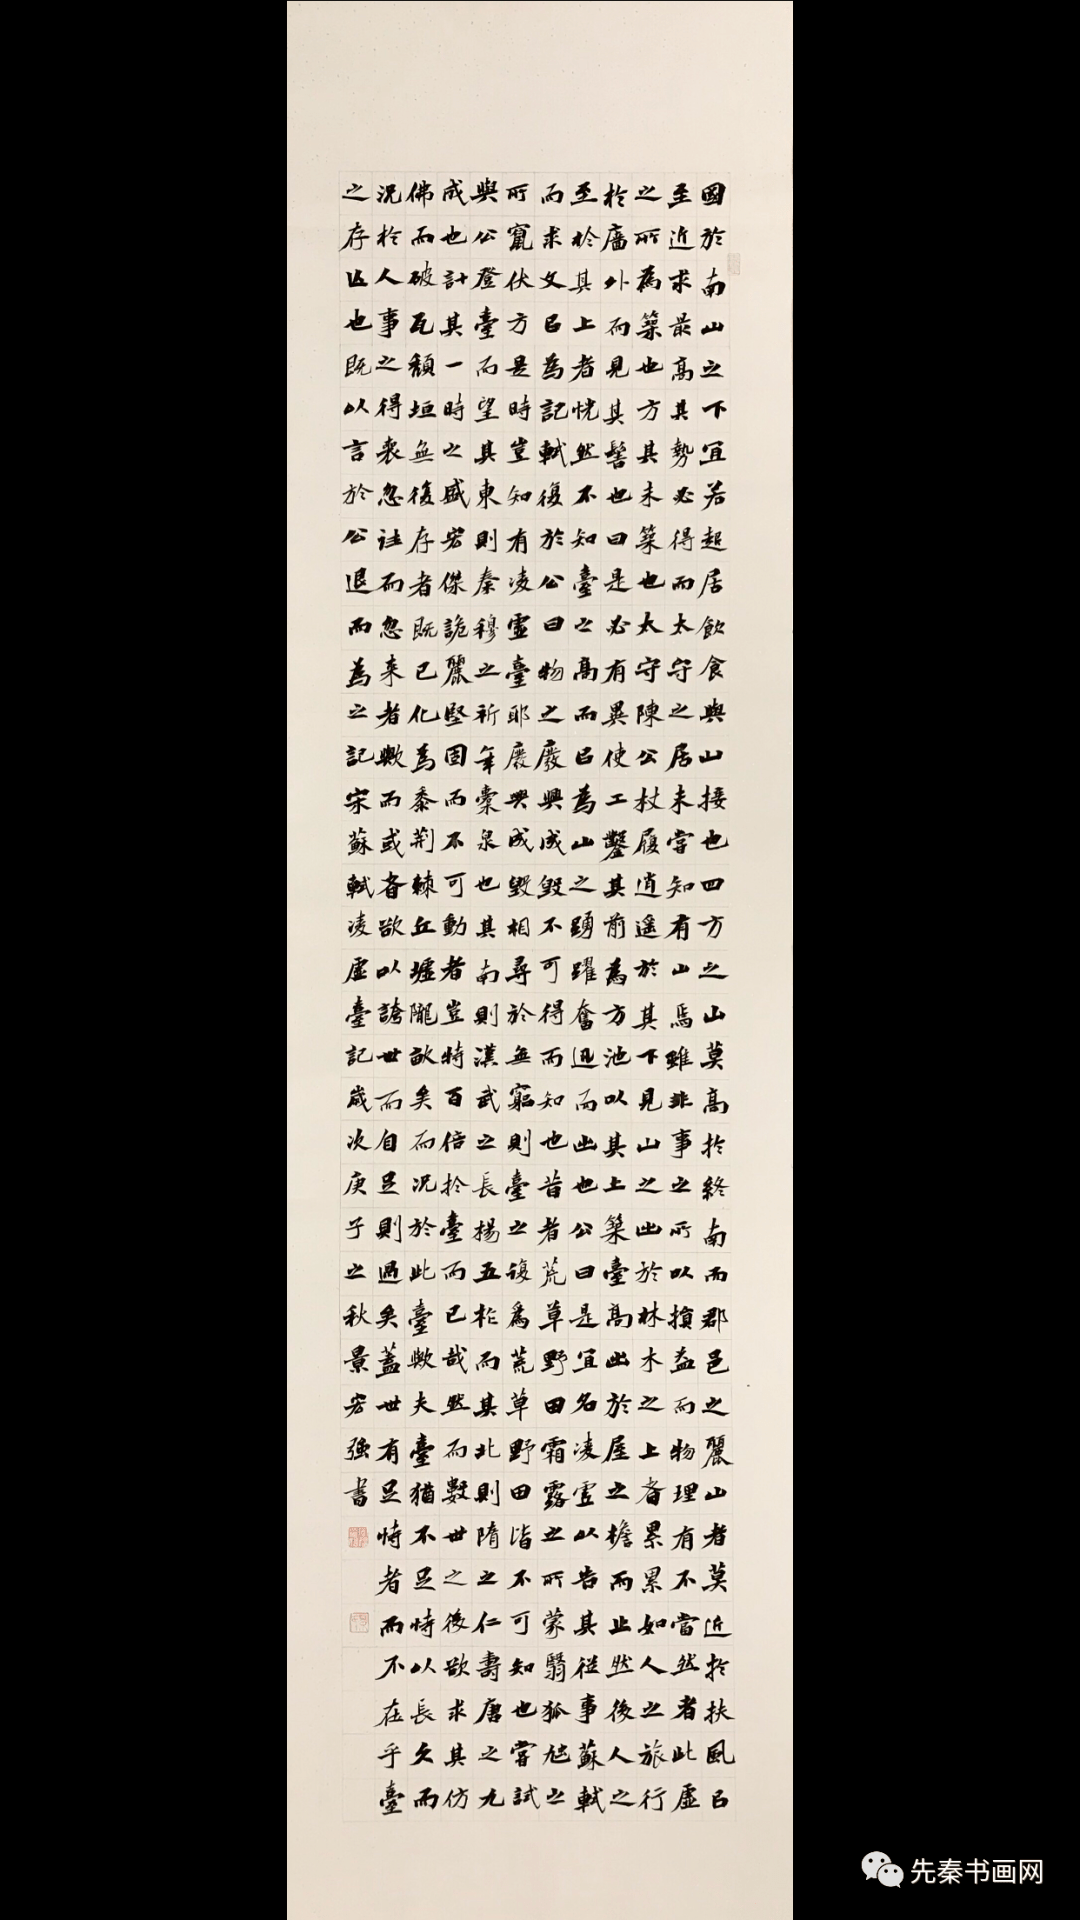 國於南山之下宜若起居飲食與山接也四方之山莫高於終南而郡邑之麗山者莫近於扶風以
至近求最高其勢必得而太守之居未嘗知有山焉雖非事之所以損益而物理有不當然者此虛
之所為築也方其未築也太守陳公杖履逍遙於其下見山之出於林木之上者累累如人之旅行
於廧外而見其髻也曰是必有異使工鑿其前為方池以其土築臺高出於屋之檐而止然後人之
至於其上者恍然不知臺之高而以為山之踴躍奮迅而出也公曰是宜名凌虛以告其從事蘇軾
而求文以為記軾復於公曰物之廢興成毀不可得而知也昔者荒草野田霜露之所蒙翳狐虺之
所竄伏方是時豈知有凌虛臺耶廢興成毀相尋於無窮則臺之復為荒草野田皆不可知也嘗試
與公登臺而望其東則秦穆之祈年橐泉也其南則漢武之長楊五柞而其北則隋之仁壽唐之九
成也計其一時之盛宏傑詭麗堅固而不可動者豈特百倍於臺而已哉然而數世之後欲求其仿
佛而破瓦頹垣無復存者既已化為黍荊棘丘墟隴畝矣而況於此臺歟夫臺猶不足恃以長久而
況於人事之得喪忽往而忽來者歟而或者欲以誇世而自足則過矣蓋世有足恃者而不在乎臺
之存亡也既以言於公退而為之記宋蘇軾凌虛臺記歲次庚子之秋景宏強書
先秦书画网